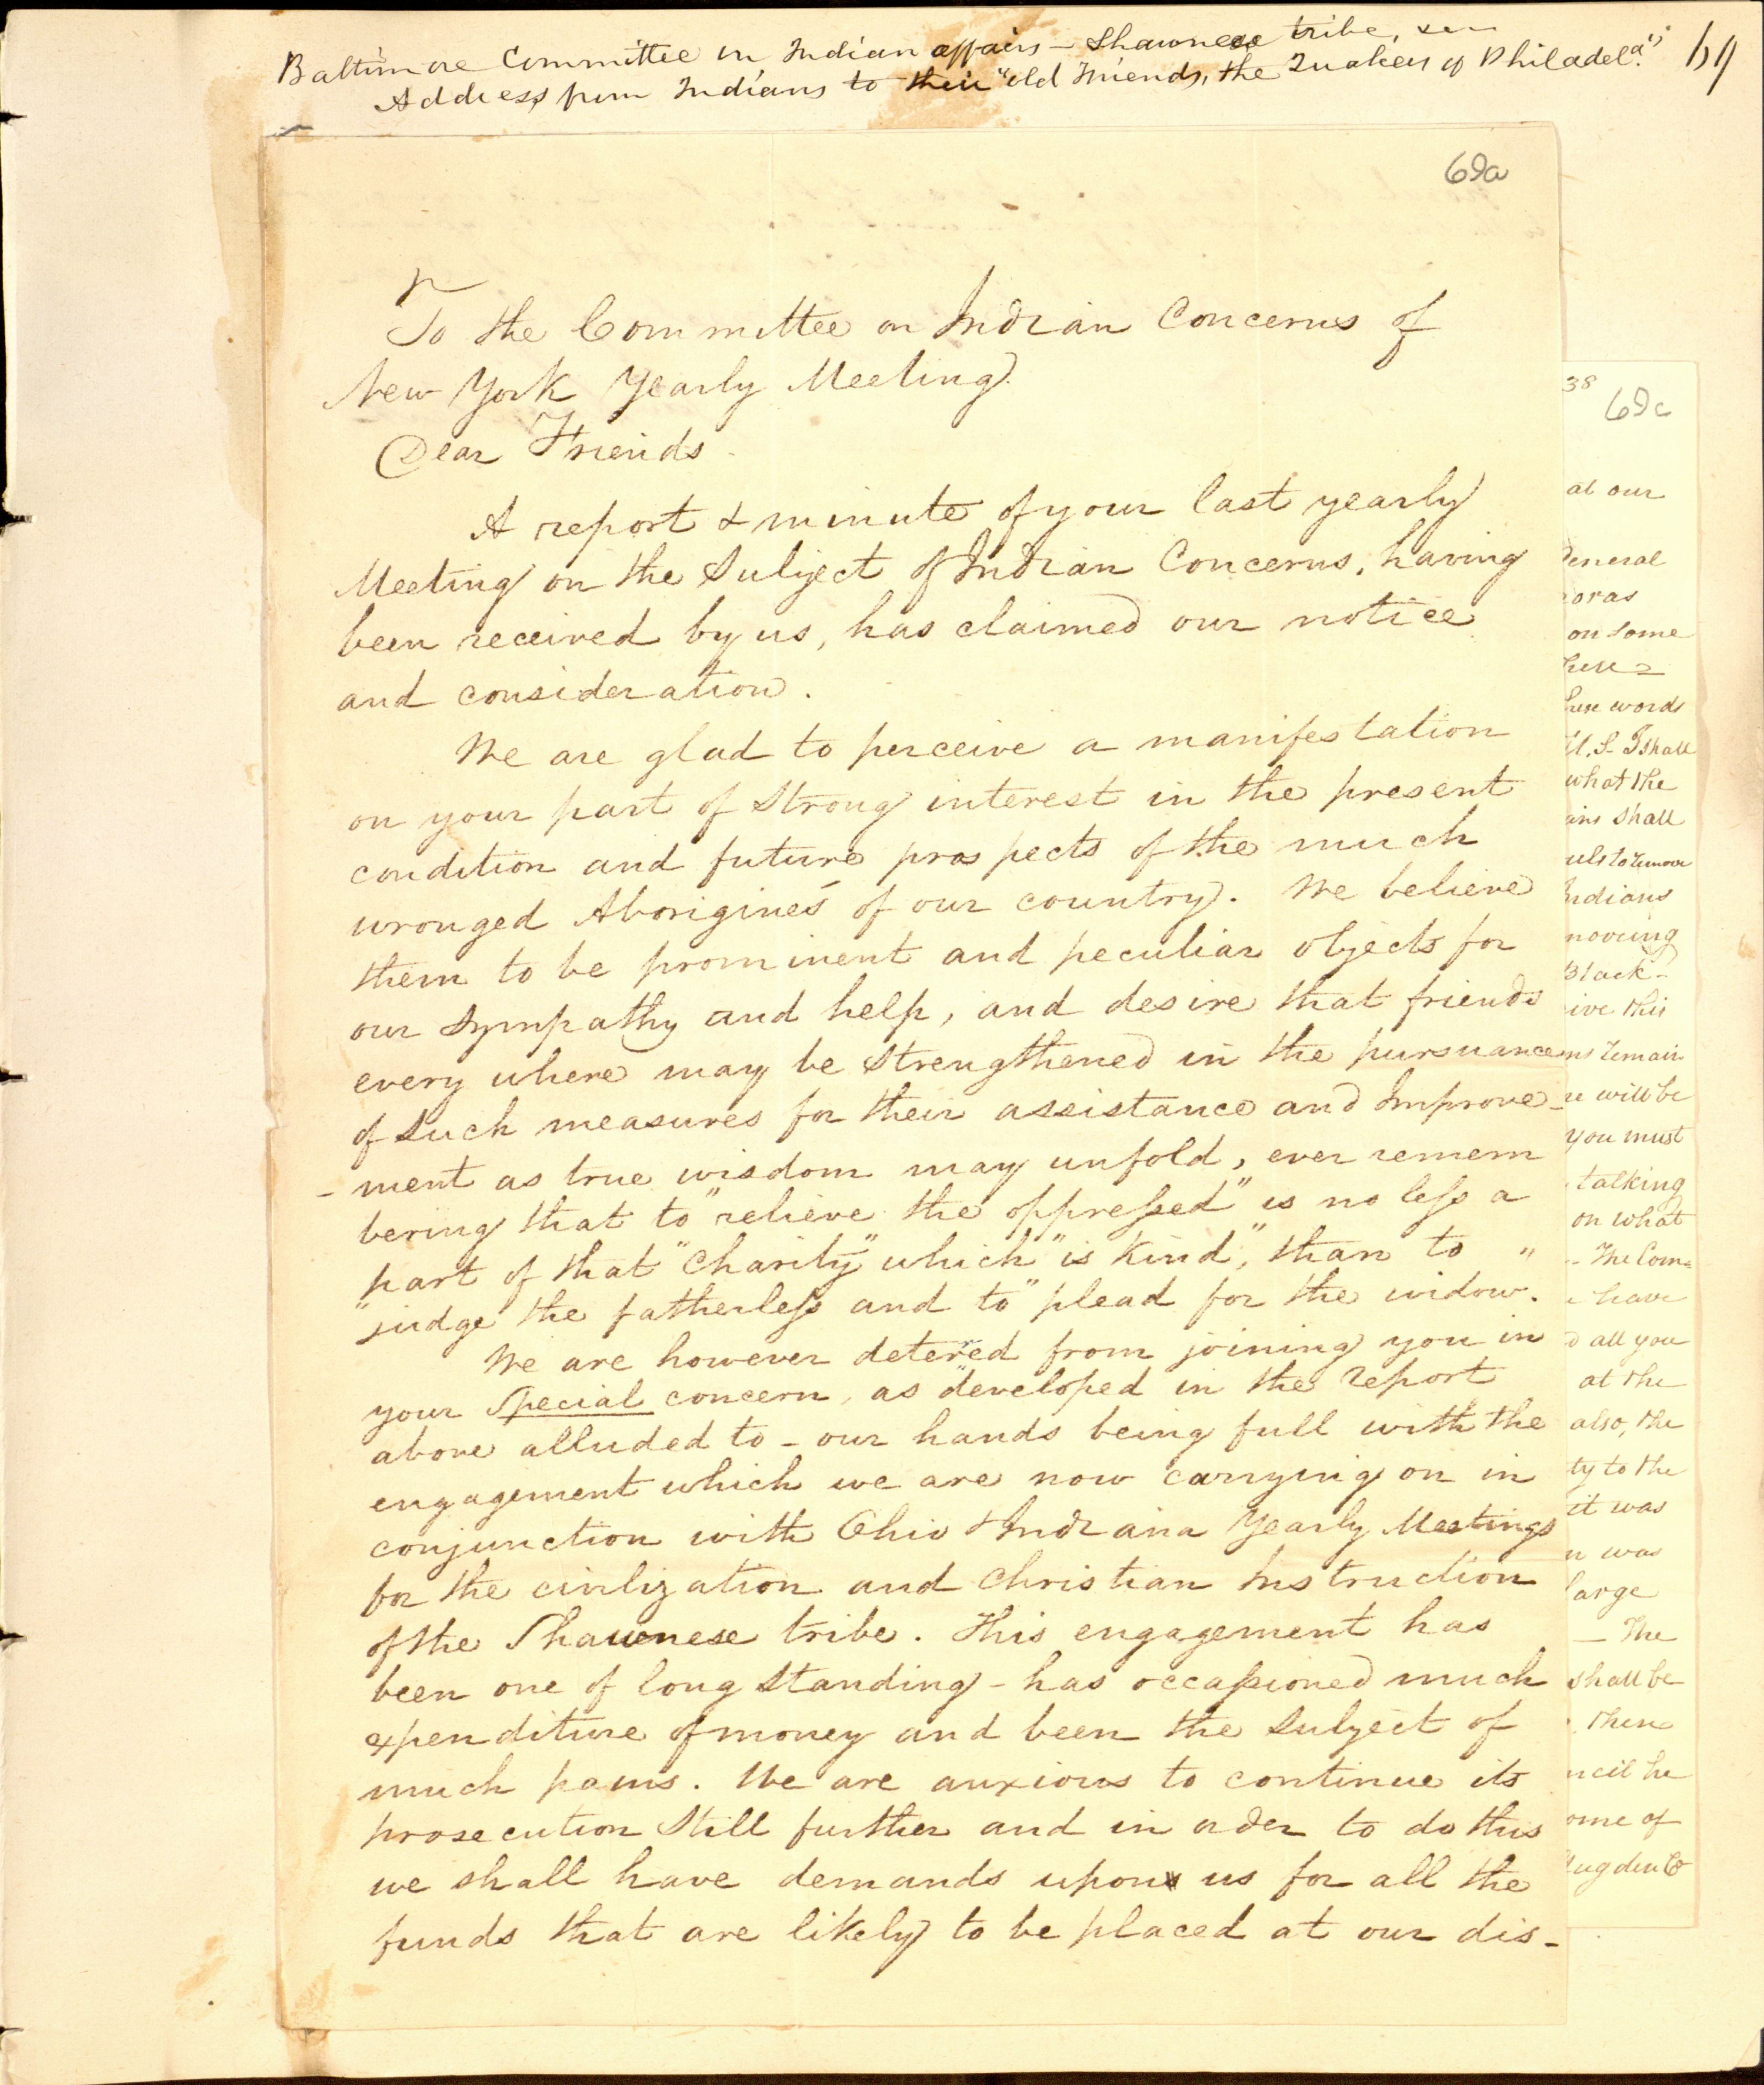 Baltimore Committee on Indian affairs - Shawnese tribe,
Address from Indians to their "old Friends, the Quakers of Philadela."
69
69a
To the Committee on Indian Concerns of
New York Yearly Meeting.
Dear Friends
A report & minute of your last yearly
Meeting on the Subject of Indian Concerns, having
been received by us, has claimed our notice
and consideration.
We are glad to perceive a manifestation
on your part of Strong interest in the present
condition and future prospects of the much
wronged Aborigines of our country. We believe
them to be prominent and peculiar objects for
our Sympathy and help, and desire that friends
every where may be Strengthened in the pursuance
of Such measures for their assistance and Improve-
-ment as true wisdom may unfold, ever remem
bering that to "relieve the oppressed" is no less a
part of that "Charity" which "is Kind," than to "
"judge the fatherless and to "plead for the widow.
We are however deterred from joining you in
your Special concern, as developed in the report
above alluded to - our hands being full with the
engagement which we are now carrying on in
conjunction with Ohio & Indiana Yearly Meetings
for the civilization and Christian Instruction
of the Shawnese tribe. This engagement has
been one of long Standing - has occassioned much
expenditure of money and been the Subject of
much pains. We are anxious to continue its
prosecution Still further and in order to do this
we shall have demands upon us for all the
funds that are likely to be placed at our dis-
38
69c
at our
eneral
oras
on some
these words
U.S. I shall
what the
ans shall
uls to remove
Indians
mooving
Black-
ive this
ns remain
will be
you must
talking
on what
- The Com=
have
all you
at the
also, the
ty to the
it was
was
large
- The
shall be
then
ncil he
ome of